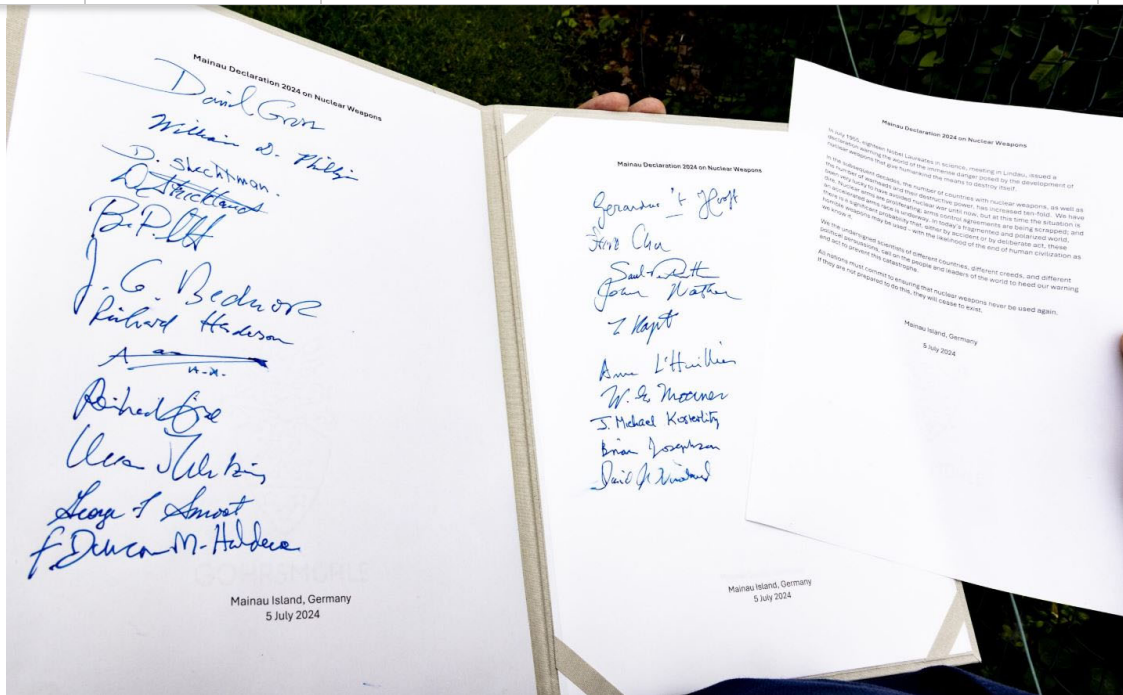 Mainau Declaration 2024 on Nuclear Weapons
David Gross
William D. Phillips
D. Shechtman.
D Strickland
J. G. Bednorz
Richard Henderson
George F Smoot
F. Duncan M. Haldane
Mainau Island, Germany
5 July 2024
Mainau Declaration 2024 on Nuclear Weapons
Gerardus 't Hooft
Steve Chu
Saul Perlmutter
John Mather
Anne L'Huillier
W. E. Moerner
J. Michael Kosterlitz
Brian Josephson
David J Wineland
Mainau Island, Germany
5 July 2024
Mainau Declaration 2024 on Nuclear Weapons
In July 1955, eighteen Nobel Laureates in science, meeting in Lindau, issued a
declaration warning the world of the immense danger posed by the development of
nuclear weapons that give humankind the means to destroy itself.
In the subsequent decades, the number of countries with nuclear weapons, as well as
the number of warheads and their destructive power, has increased ten-fold. We have
been very lucky to have avoided nuclear war until now, but at this time the situation is
dire. Nuclear arms are proliferating; arms control agreements are being scrapped; and
an accelerated arms race is underway. In today's fragmented and polarized world,
there is a significant probability that, either by accident or by deliberate act, these
horrible weapons may be used – with the likelihood of the end of human civilization as
we know it.
We the undersigned scientists of different countries, different creeds, and different
political persuasions, call on the people and leaders of the world to heed our warning
and act to prevent this catastrophe.
All nations must commit to ensuring that nuclear weapons never be used again.
If they are not prepared to do this, they will cease to exist.
Mainau Island, Germany
5 July 2024